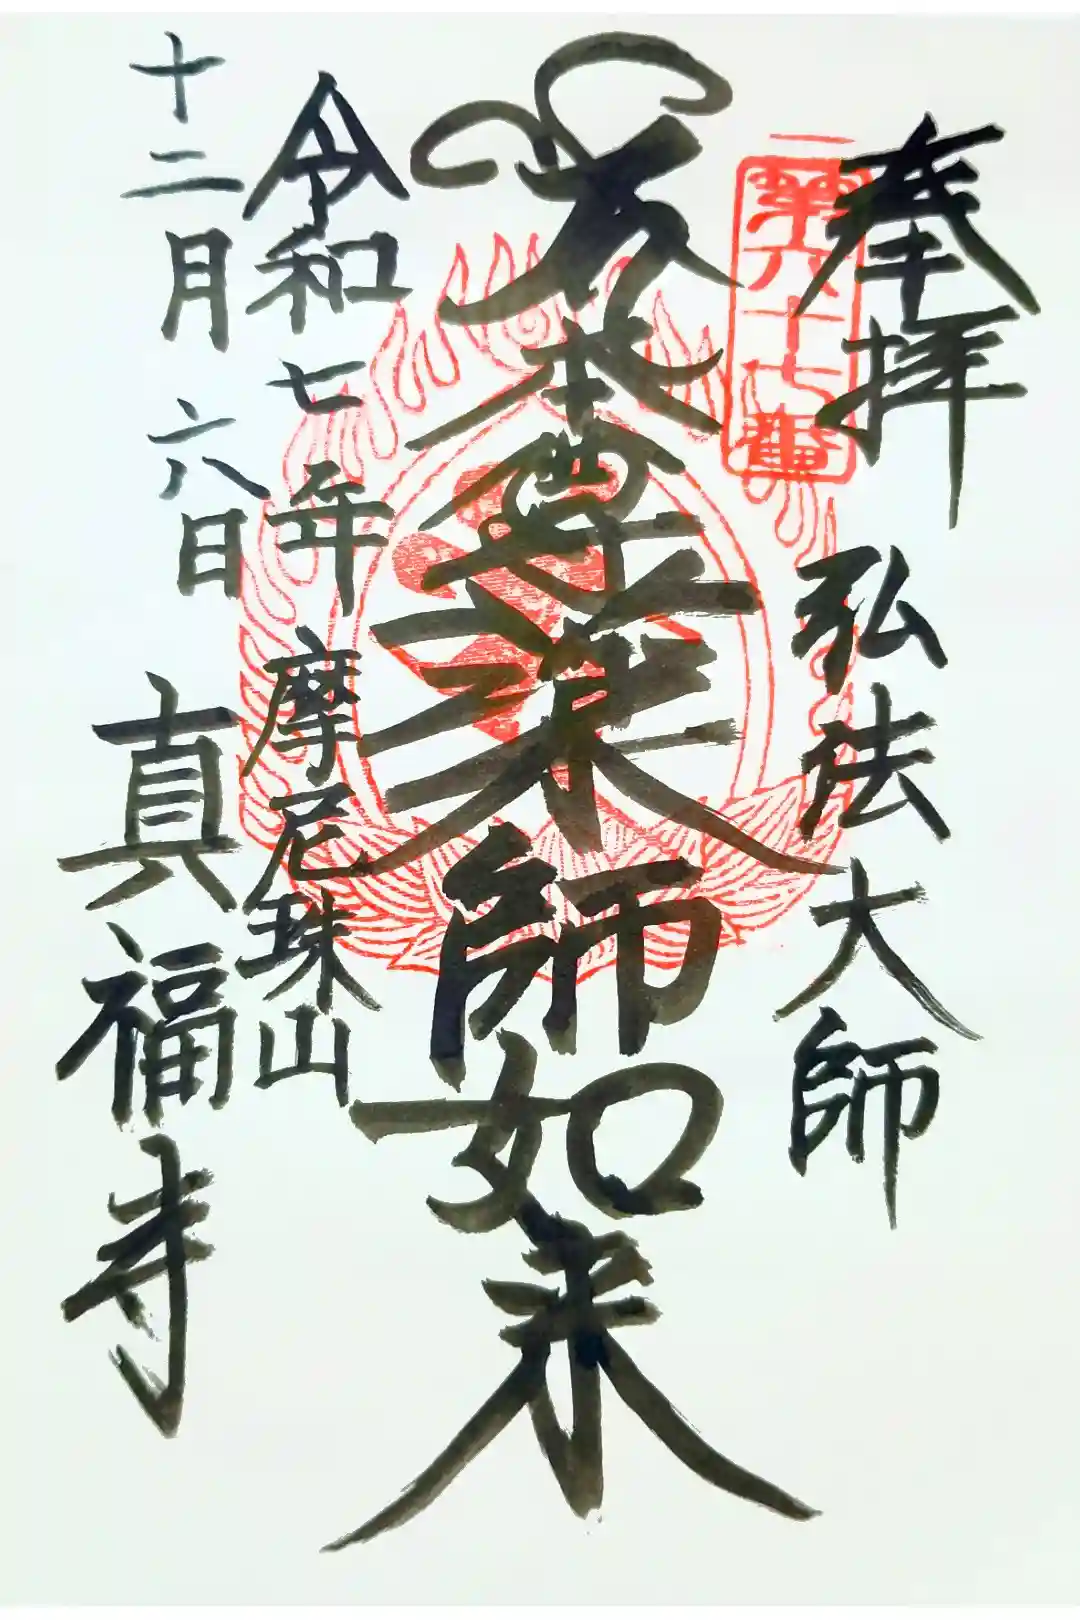 奉拝
弘法大師
第六十七番
本尊薬師如来
令和七年
十二月六日
摩尼珠山
真福寺